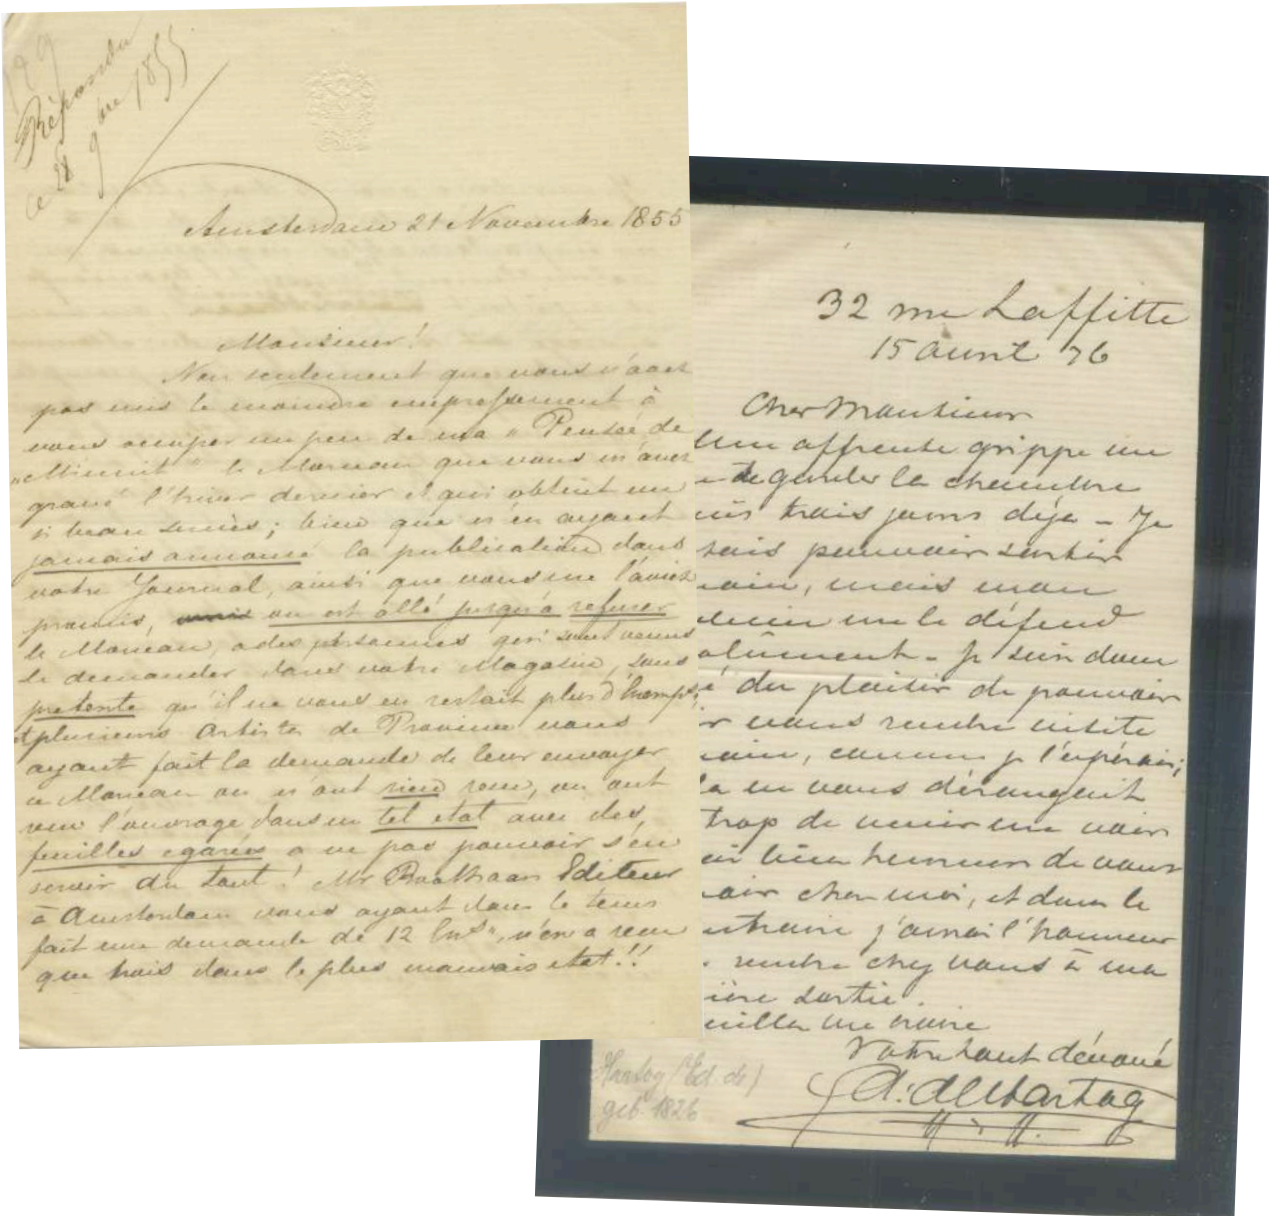 Répondu
ce 28 9bre 1855
Amsterdam 21 Novembre 1855
Monsieur!
Non seulement que vous n'avez
pas mis le moindre empressement à
vous occuper un peu de ma "Pensée de
"Minuit" le Morceau que vous m'avez
gravé l'hiver dernier et qui obtint un
si beau succès; bien que n'en ayant
jamais annoncé la publication dans
votre Journal, ainsi que vous me l'aviez
promis, on est allé jusqu'à refuser
le Morceau, a des personnes qui sont venus
le demander dans votre Magasin, sous
pretexte qu'il ne vous en restait plus d'Exempl;
et plusieurs Artistes de Province vous
ayant fait la demande de leur envoyer
ce Morceau ou n'ont rien recu, ou ont
recu l'ouvrage dans un tel etat avec des
feuilles egarées a ne pas pouvoir s'en
servir du tout! Mr Editeur
à Amsterdam vous ayant dans le tems
fait une demande de 12 , n'en a recu
que trois dans le plus mauvais etat!!
32 rue Laffitte
15 avril 76
Cher Monsieur
Une affreuse grippe me
de garder la chambre
uis trois jours déja - Je
sais pouvoir sortir
ain, mais mon
decin me le défend
olûment - Je suis donc
é du plaisir de pouvoir
ir vous rendre visite
ain, comme je l'espérais;
la en vous dérangeait
trop de venir me voir
bien heureux de vous
oir chez moi, et dans le
ntraire j'aurai l'honneur
rendre chez vous à ma
ière sortie.
euillez me croire
Votre tout dévoué
Ed: de Hartog
Hartog (Ed. de)
geb. 1826